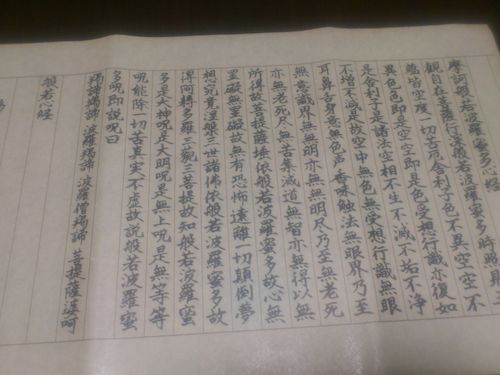 摩訶般若波羅蜜多心経
観自在菩薩行深般若波羅蜜多時照見
蘊皆空度一切苦厄舎利子色不異空空不
異色色即是空空即是色受想行識亦復如
是舎利子是諸法空相不生不滅不垢不浄
不増不減是故空中無色無受想行識無眼
耳鼻舌身意無色声香味触法無眼界乃至
無意識界無無明亦無無明尽乃至無老死
亦無老死尽無苦集滅道無智亦無得以無
所得故菩提薩埵依般若波羅蜜多故心無
罣礙無罣礙故無有恐怖遠離一切顛倒夢
想究竟涅槃三世諸佛依般若波羅蜜多故
得阿耨多羅三藐三菩提故知般若波羅蜜
多是大神呪是大明呪是無上呪是無等等
呪能除一切苦真実不虚故説般若波羅蜜
多呪即説呪曰
羯諦羯諦 波羅羯諦 波羅僧羯諦 菩提薩婆呵
般若心経